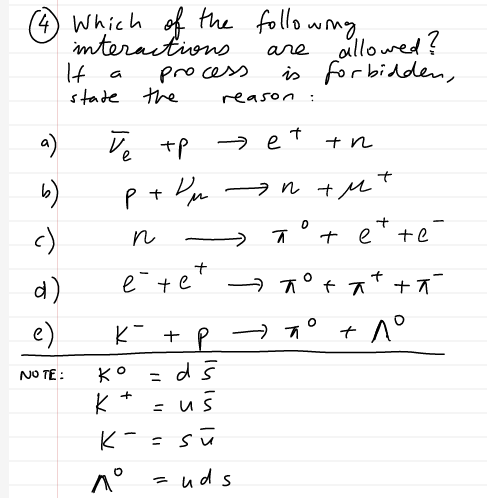 ④ Which of the following
interactions are allowed?
If a process is forbidden,
state the reason :
a) ν̅ₑ + p → e⁺ + n
b) p + ν_μ → n + μ⁺
c) n → π⁰ + e⁺ + e⁻
d) e⁻ + e⁺ → π⁰ + π⁺ + π⁻
e) K⁻ + p → π⁰ + Λ⁰
NOTE: K⁰ = d s̅
K⁺ = u s̅
K⁻ = s u̅
Λ⁰ = u d s